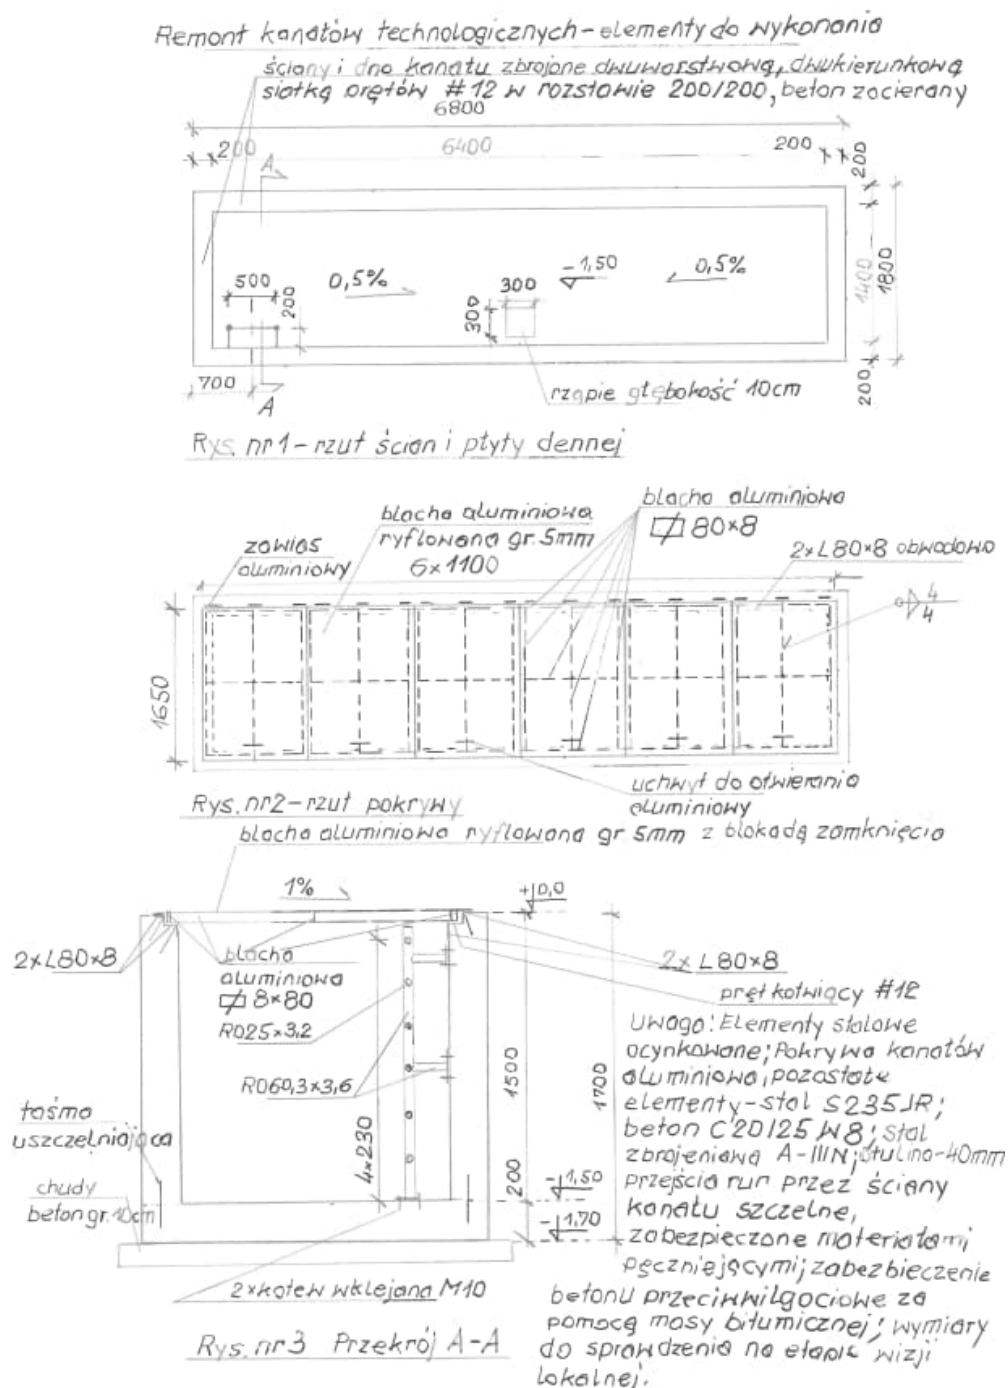 Remont kanałów technologicznych-elementy do wykonania
ściany i dno kanału zbrojone dwuwarstwową, dwukierunkową
siatką prętów #12 w rozstawie 200/200, beton zacierany
6800
200
6400
200
200
A
500
200
0,5%
-1,50
0,5%
300
300
1400
1800
700
A
rząpie głębokość 10cm
200
Rys. nr1-rzut ścian i płyty dennej
blacha aluminiowa
80×8
blacha aluminiowa
ryflowana gr. 5mm
6×1100
zawias
aluminiowy
2×L80×8 obwodowo
4
4
1650
uchwyt do otwierania
aluminiowy
Rys. nr2-rzut pokrywy
blacha aluminiowa ryflowana gr 5mm z blokadą zamknięcia
1%
+0,0
2×L80×8
blacha
aluminiowa
8×80
RO25×3,2
RO60,3×3,6
2×L80×8
pręt kotwiący #12
1500
1700
4×230
200
-1,50
-1,70
taśma
uszczelniająca
chudy
beton gr. 10cm
2×kotew wklejana M10
Rys. nr3 Przekrój A-A
Uwaga: Elementy stalowe
ocynkowane; Pokrywa kanałów
aluminiowa, pozostałe
elementy-stal S235JR;
beton C20/25 W8; stal
zbrojeniowa A-IIIN; otulina-40mm
przejścia rur przez ściany
kanału szczelne,
zabezpieczone materiałami
pęczniejącymi; zabezbieczenie
betonu przeciwwilgociowe za
pomocą masy bitumicznej; wymiary
do sprawdzenia na etapie wizji
lokalnej.